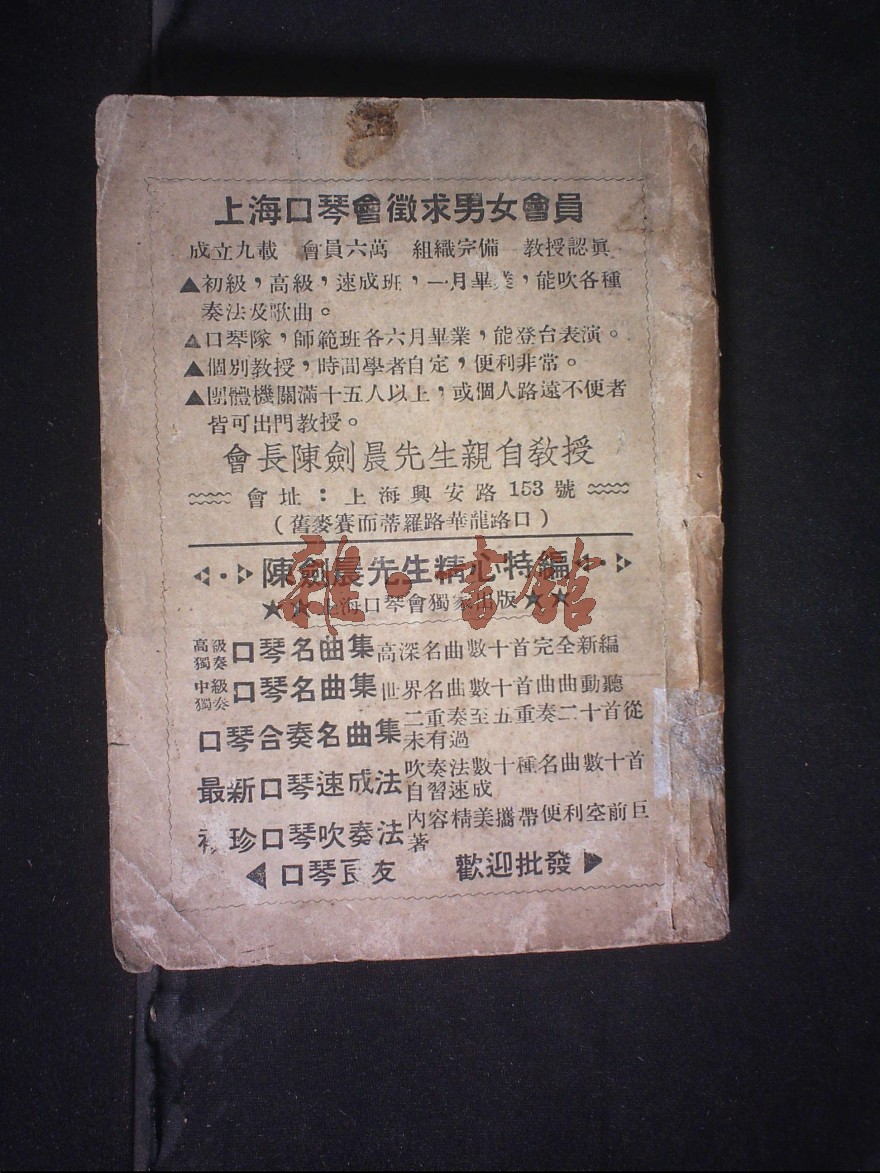 上海口琴會徵求男女會員
成立九載 會員六萬 組織完備 教授認眞
▲初級，高級，速成班，一月畢業，能吹各種
奏法及歌曲。
▲口琴隊，師範班各六月畢業，能登台表演。
▲個別教授，時間學者自定，便利非常。
▲團體機關滿十五人以上，或個人路遠不便者
皆可出門教授。
會長陳劍晨先生親自教授
會址：上海興安路153號
（舊麥賽而蒂羅路華龍路口）
陳劍晨先生精心特編
★★上海口琴會獨家出版★★
雜·書館
高級獨奏 口琴名曲集 高深名曲數十首完全新編
中級獨奏 口琴名曲集 世界名曲數十首曲曲動聽
口琴合奏名曲集 二重奏至五重奏二十首從未有過
最新口琴速成法 吹奏法數十種名曲數十首自習速成
袖珍口琴吹奏法 內容精美攜帶便利空前巨著
◀口琴良友 歡迎批發▶